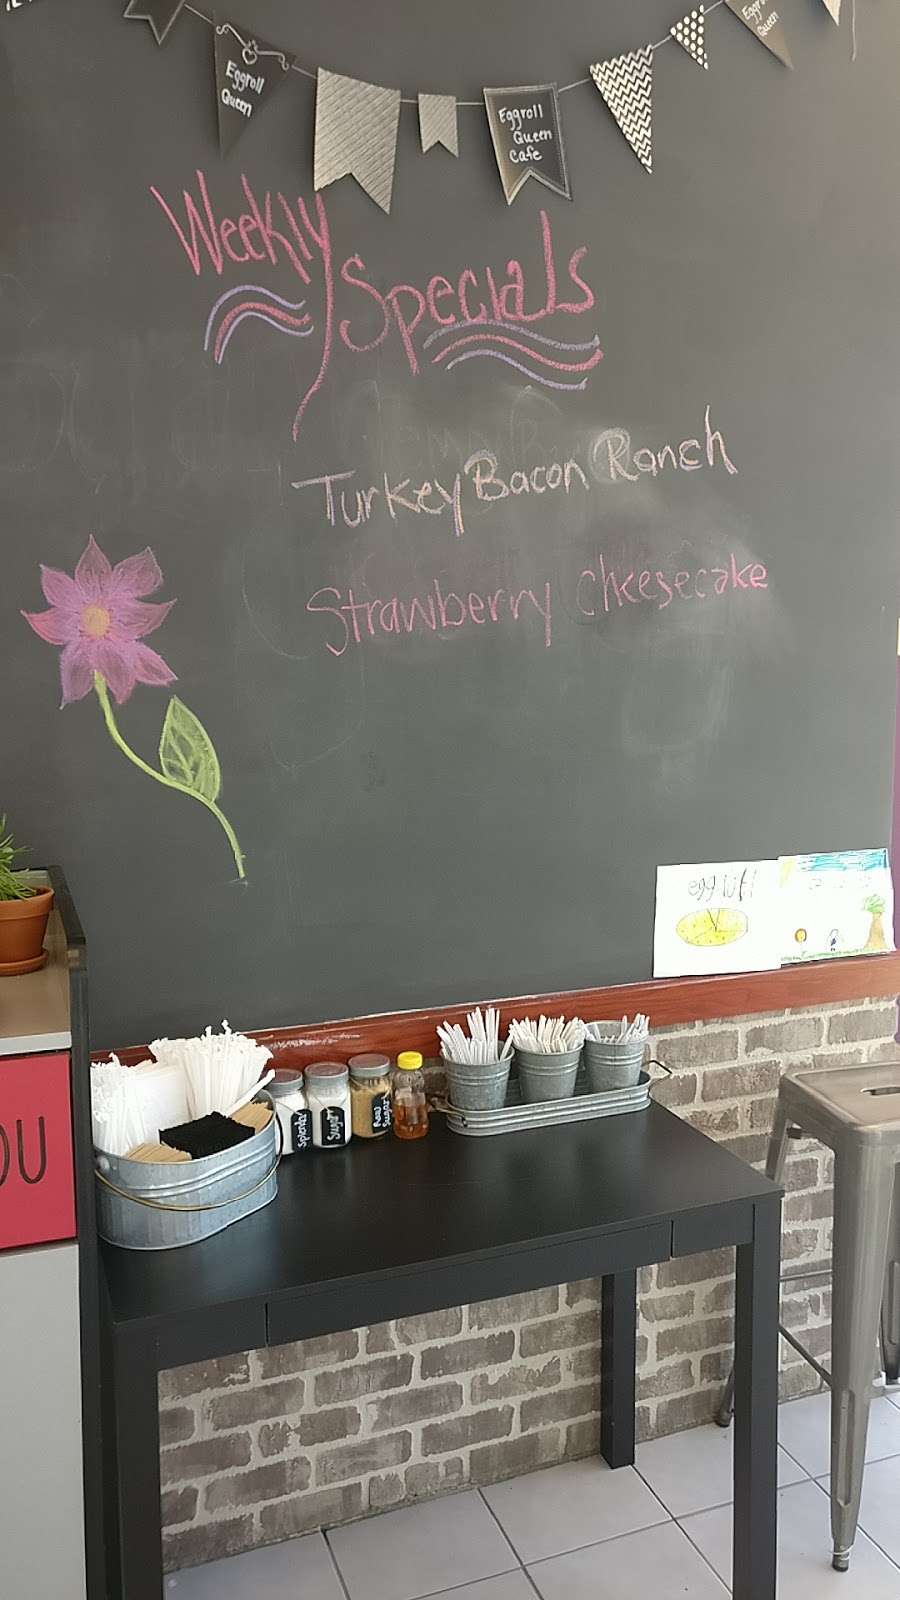 Eggroll
Queen
Eggroll
Queen
Cafe
Eggroll
Queen
Weekly
Specials
Turkey Bacon Ranch
Strawberry Cheesecake
egg
Splenda
Sugar
Raw
Sugar
OU